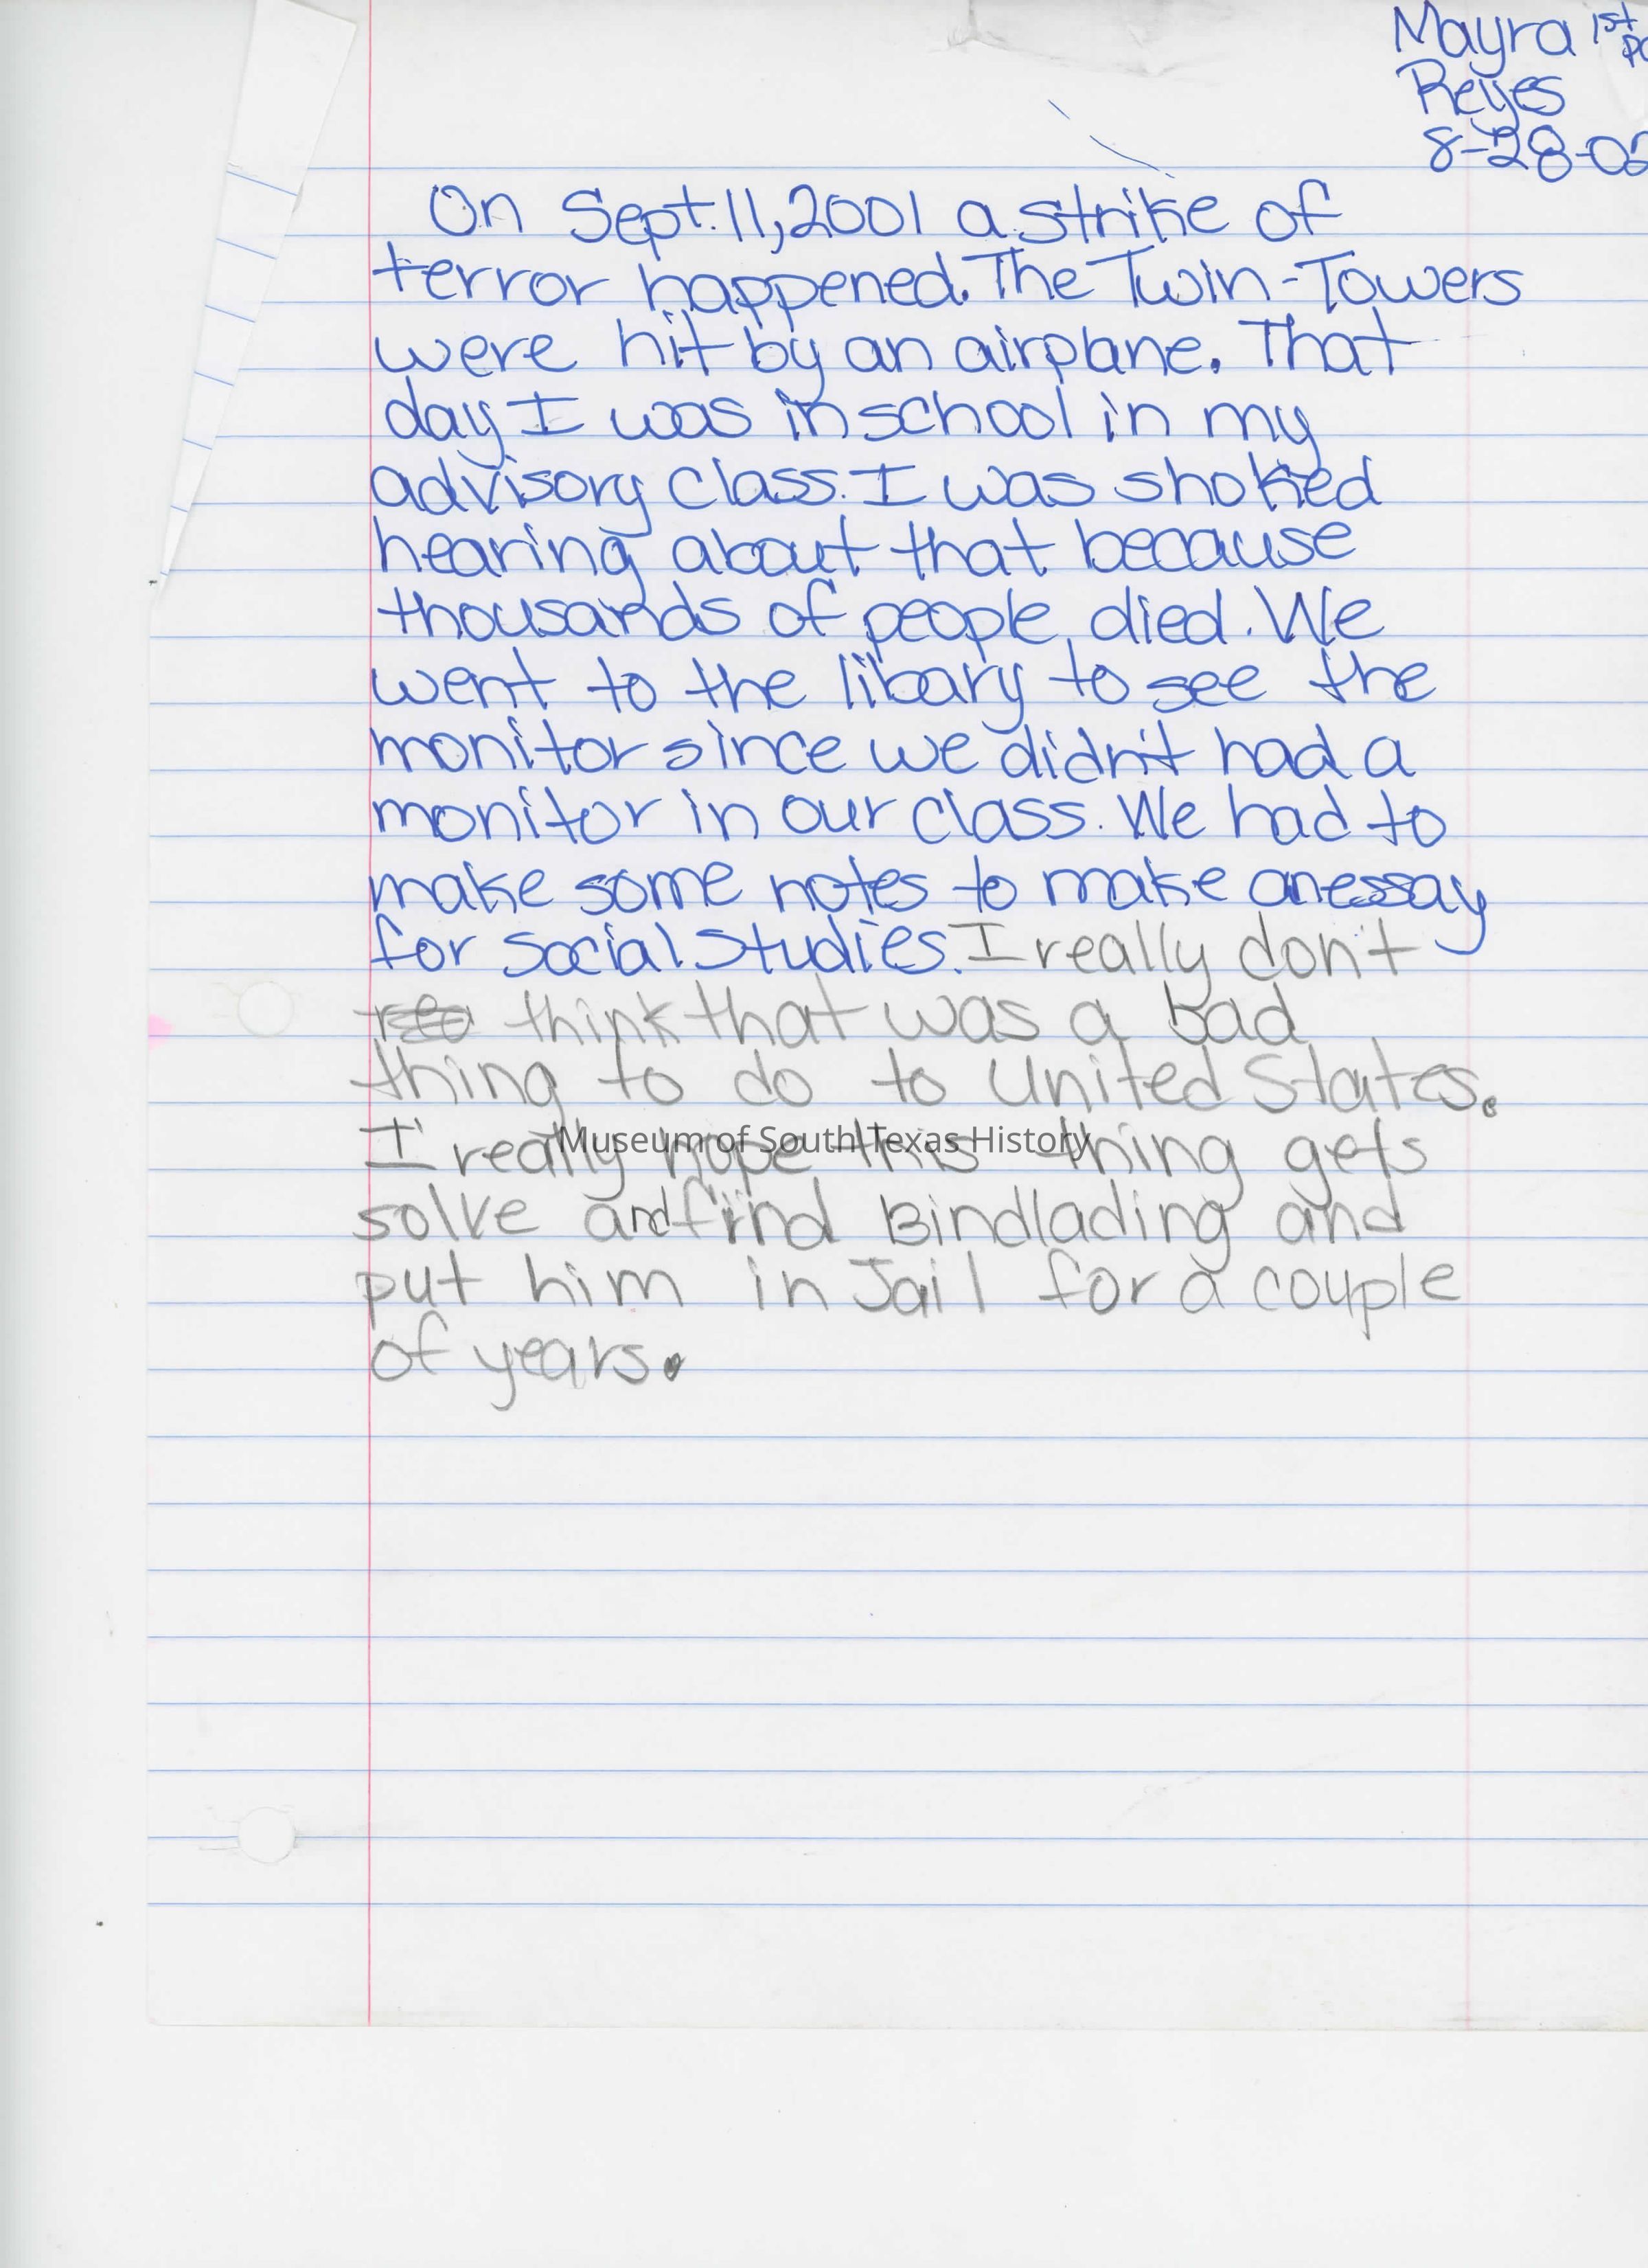 Mayra 1st
Reyes
8-28-02
On Sept. 11, 2001 a strike of
terror happened. The Twin-Towers
were hit by an airplane. That
day I was in school in my
advisory class. I was shoked
hearing about that because
thousands of people died. We
went to the libary to see the
monitor since we didn't had a
monitor in our class. We had to
make some notes to make an essay
for Social Studies. I really don't
think that was a bad
thing to do to United States.
I really hope this thing gets
Museum of South Texas History
solve and find Bindlading and
put him in Jail for a couple
of years.